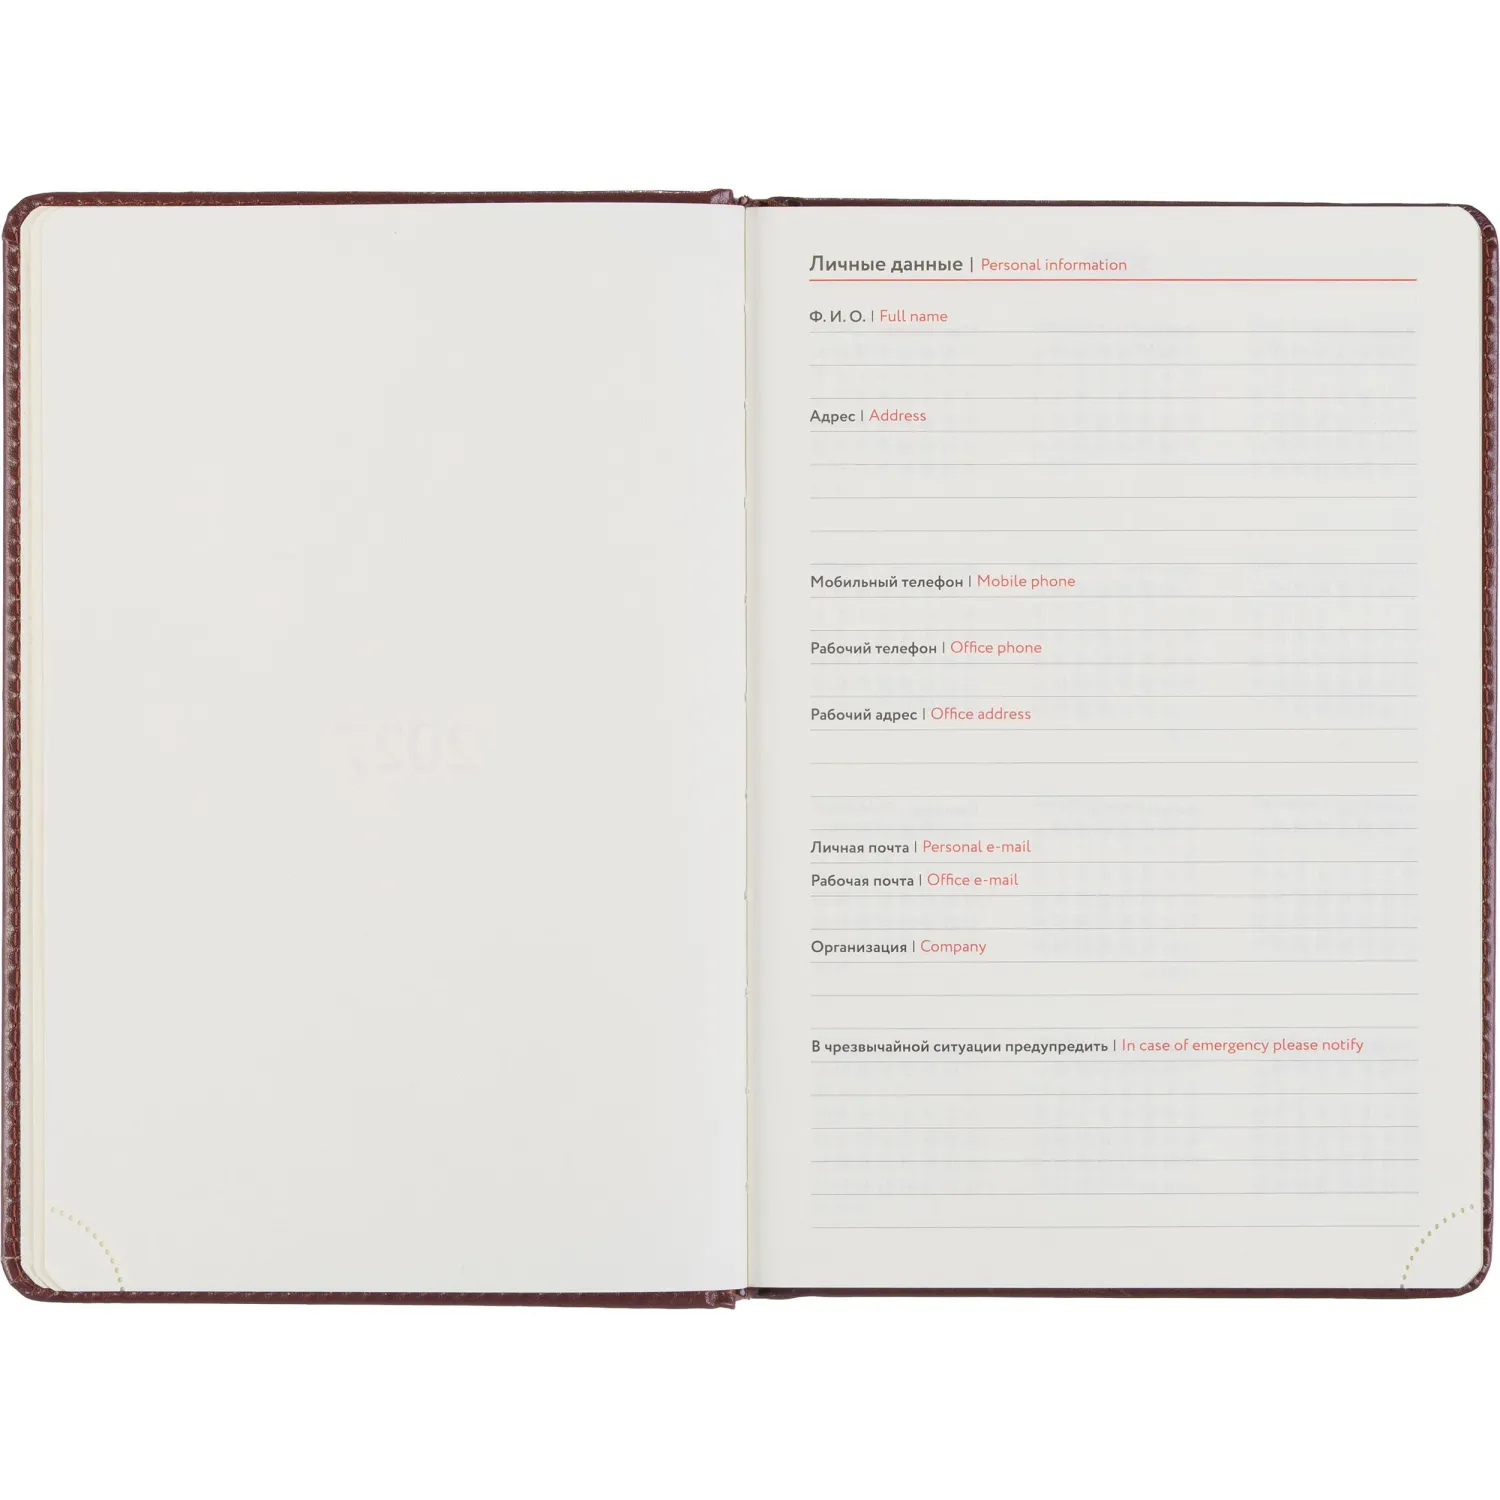 2027
Личные данные | Personal information
Ф. И. О. | Full name
Адрес | Address
Мобильный телефон | Mobile phone
Рабочий телефон | Office phone
Рабочий адрес | Office address
Личная почта | Personal e-mail
Рабочая почта | Office e-mail
Организация | Company
В чрезвычайной ситуации предупредить | In case of emergency please notify